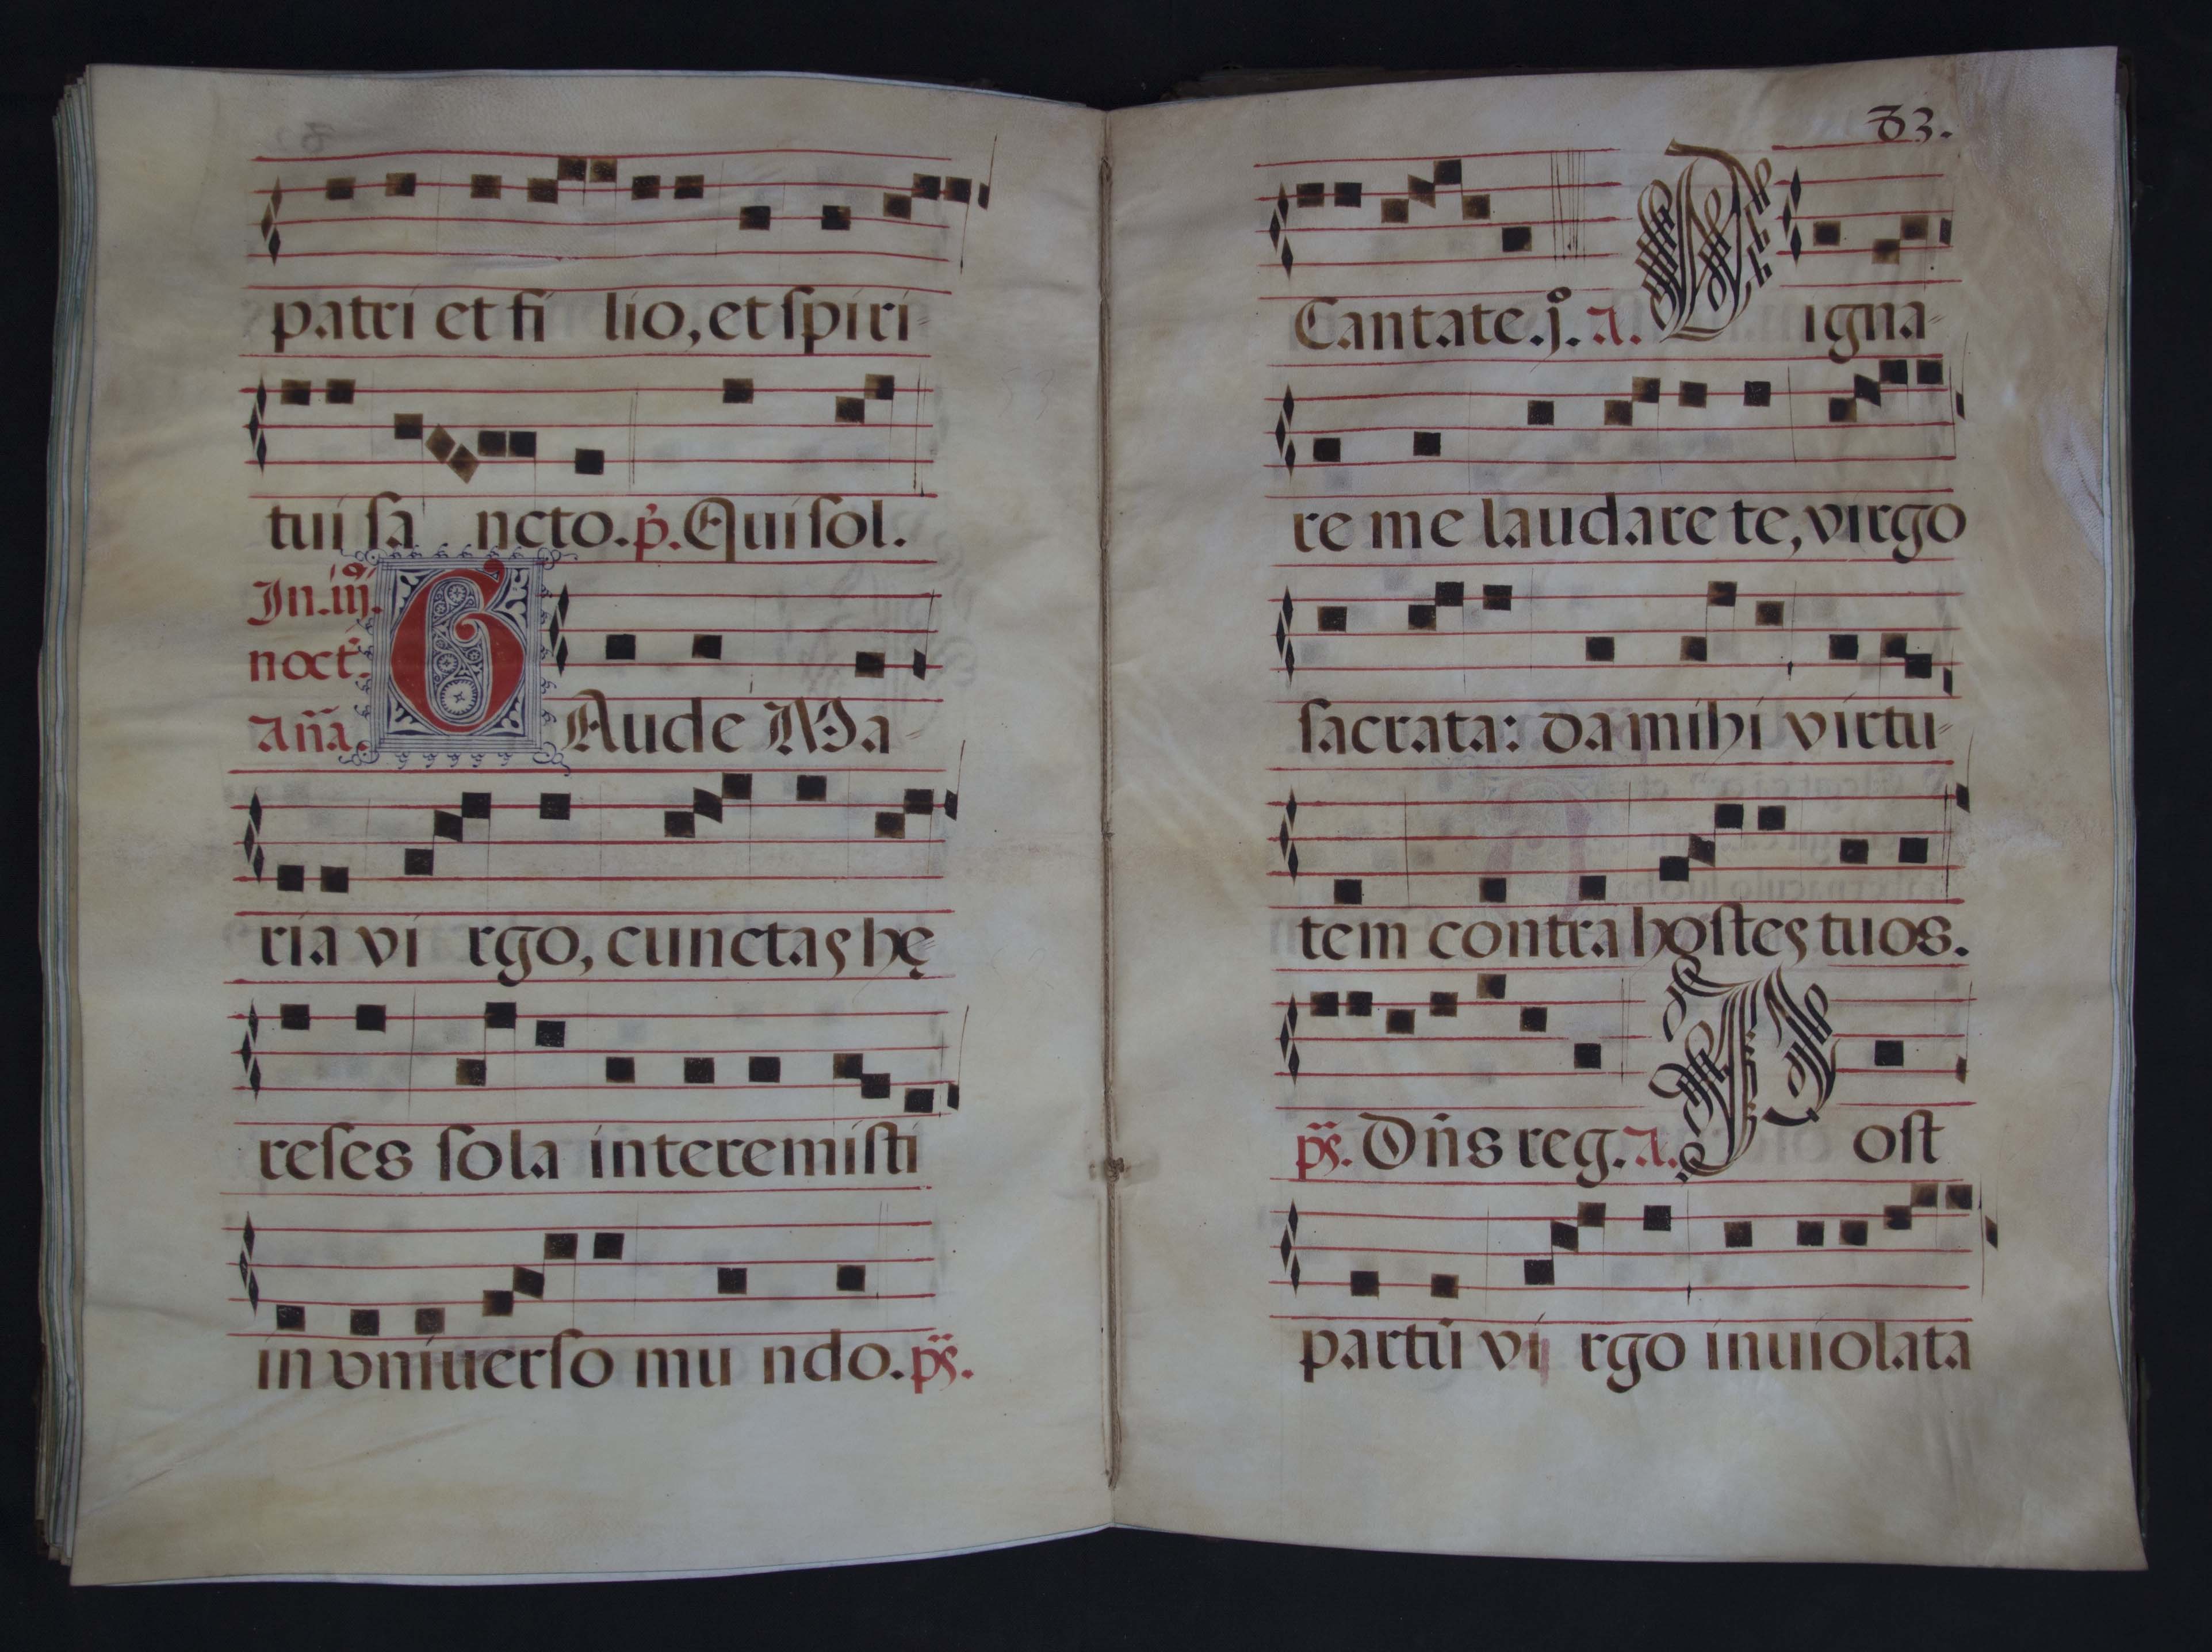 patri et fi lio, et spiri-
tui sa ncto. p̃. Qui sol.
In. iij.
noct̃.
Añа.
GAude Ma-
ria vi rgo, cunctas hę-
reses sola interemisti
in vniuerso mu ndo. p̃s.
83.
Cantate. j. A. Digna-
re me laudare te, virgo
sacrata: da mihi virtu-
tem contra hostes tuos.
p̃s. Dñs reg. A. Post
partũ vi rgo inuiolata